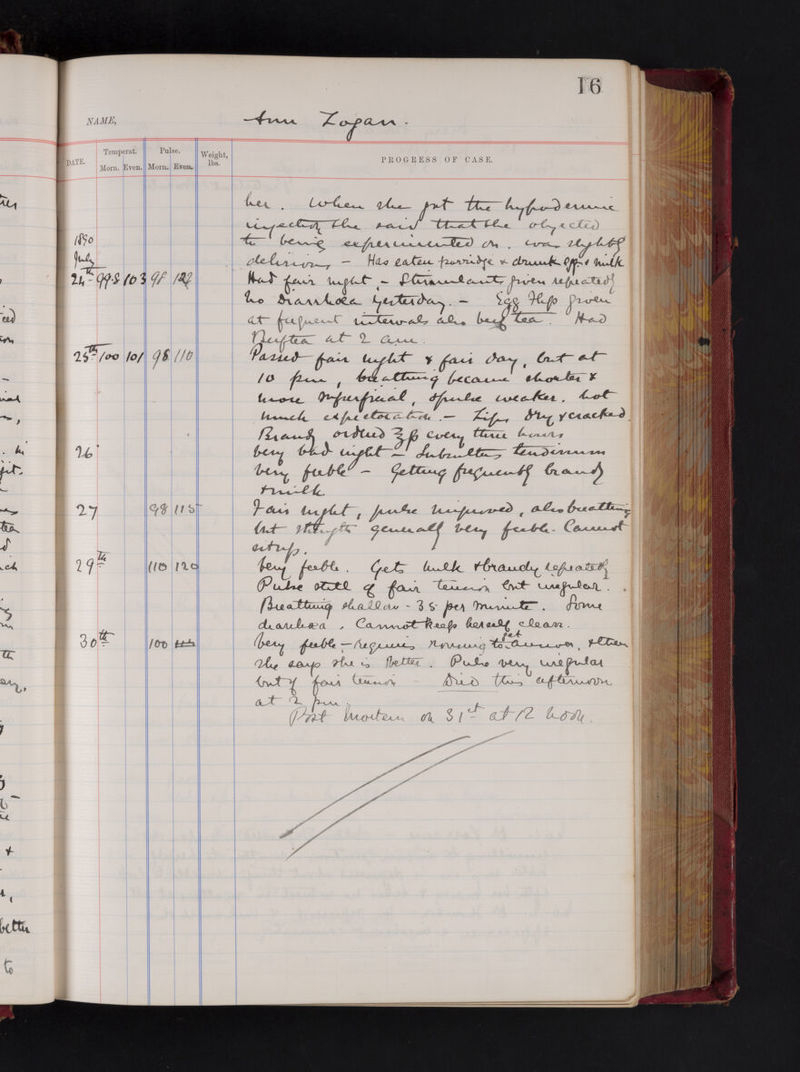 16
NAME, Ann Logan.
DATE. Temperat. Morn. Even. Pulse. Morn. Even. Weight, lbs. PROGRESS OF CASE.
her. When she got the hypodermic
injection she said that she objected
1890 to being experimented on. was slightly
July delirious - Has eaten porridge & drunk egg & milk
24th 99.8 103 98 122 Had fair night, - Stimulants given repeatedly
No Diarrhoea yesterday. - Egg Flip given
at frequent intervals also beef tea. Had
Beeftea at 2 am.
25th 100 101 98 110 Passed fair night & fair day, but at
10 pm, breathing became shorter &
more superficial, & pulse weaker. Not
much expectoration. - Lips dry & cracked.
Brandy ordered ℥ß every three hours
26 Very bad night - Subsultus tendinum
Very feeble - Getting frequently brandy
& milk
27 98 115 Fair night, pulse improved, also breathing
but strength generally very feeble. Cannot
sit up.
29th 110 120 Very feeble. Gets milk & brandy repeatedly
Pulse still of fair tension but irregular.
Breathing shallow - 38 per minute. Some
diarrhœa. Cannot keep herself clean.
30th 100 Very feeble, - Requires rousing to get answer, & then
she says she is better. Pulse very irregular
but of fair tension - Died this afternoon
at 2 pm.
Post Mortem on 31st at 12 noon.